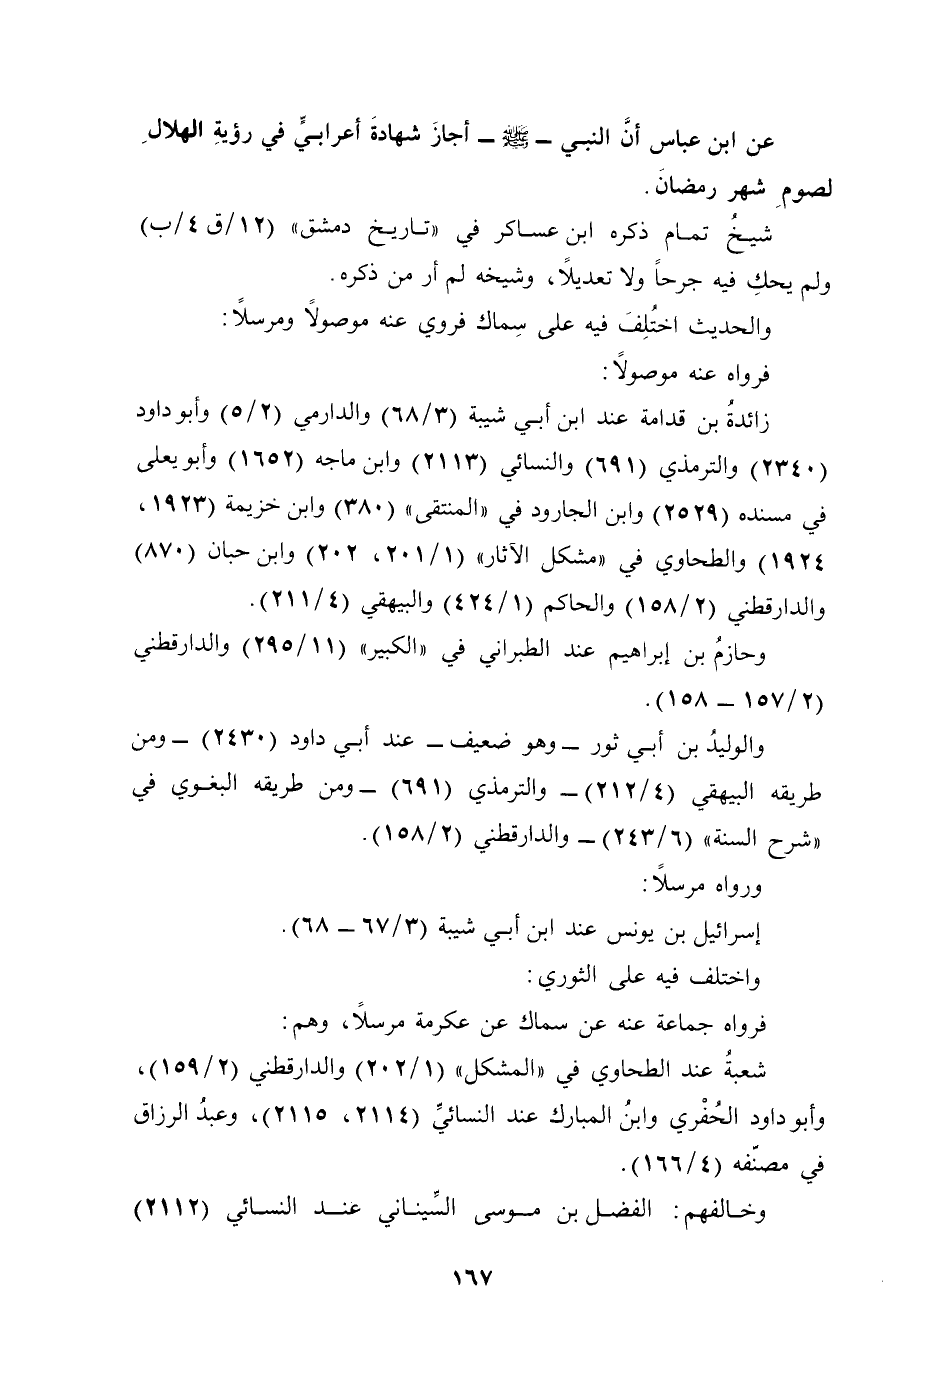 عن ابن عباس أنَّ النبي ــ ﷺ ــ أجازَ شهادةَ أعرابيٍّ في رؤيةِ الهلالِ
لصومِ شهر رمضانَ.
شيخُ تمام ذكره ابن عساكر في «تاريخ دمشق» (١٢/ق ٤/ب)
ولم يحكِ فيه جرحاً ولا تعديلاً، وشيخه لم أر من ذكره.
والحديث اختُلِفَ فيه على سِماك فروي عنه موصولاً ومرسلاً:
فرواه عنه موصولاً:
زائدةُ بن قدامة عند ابن أبي شيبة (٦٨/٣) والدارمي (٥/٢) وأبو داود
(٢٣٤٠) والترمذي (٦٩١) والنسائي (٢١١٣) وابن ماجه (١٦٥٢) وأبو يعلى
في مسنده (٢٥٢٩) وابن الجارود في «المنتقى» (٣٨٠) وابن خزيمة (١٩٢٣،
١٩٢٤) والطحاوي في «مشكل الآثار» (٢٠١/١، ٢٠٢) وابن حبان (٨٧٠)
والدارقطني (١٥٨/٢) والحاكم (٤٢٤/١) والبيهقي (٢١١/٤).
وحازمُ بن إبراهيم عند الطبراني في «الكبير» (٢٩٥/١١) والدارقطني
(١٥٧/٢ ــ ١٥٨).
والوليدُ بن أبي ثور ــ وهو ضعيف ــ عند أبي داود (٢٤٣٠) ــ ومن
طريقه البيهقي (٢١٢/٤) ــ والترمذي (٦٩١) ــ ومن طريقه البغوي في
«شرح السنة» (٢٤٣/٦) ــ والدارقطني (١٥٨/٢).
ورواه مرسلاً:
إسرائيل بن يونس عند ابن أبي شيبة (٦٧/٣ ــ ٦٨).
واختلف فيه على الثوري:
فرواه جماعة عنه عن سماك عن عكرمة مرسلاً، وهم:
شعبةُ عند الطحاوي في «المشكل» (٢٠٢/١) والدارقطني (١٥٩/٢)،
وأبو داود الحُفْري وابنُ المبارك عند النسائيِّ (٢١١٤، ٢١١٥)، وعبدُ الرزاق
في مصنّفه (١٦٦/٤).
وخالفهم: الفضل بن موسى السِّيناني عند النسائي (٢١١٢)
١٦٧